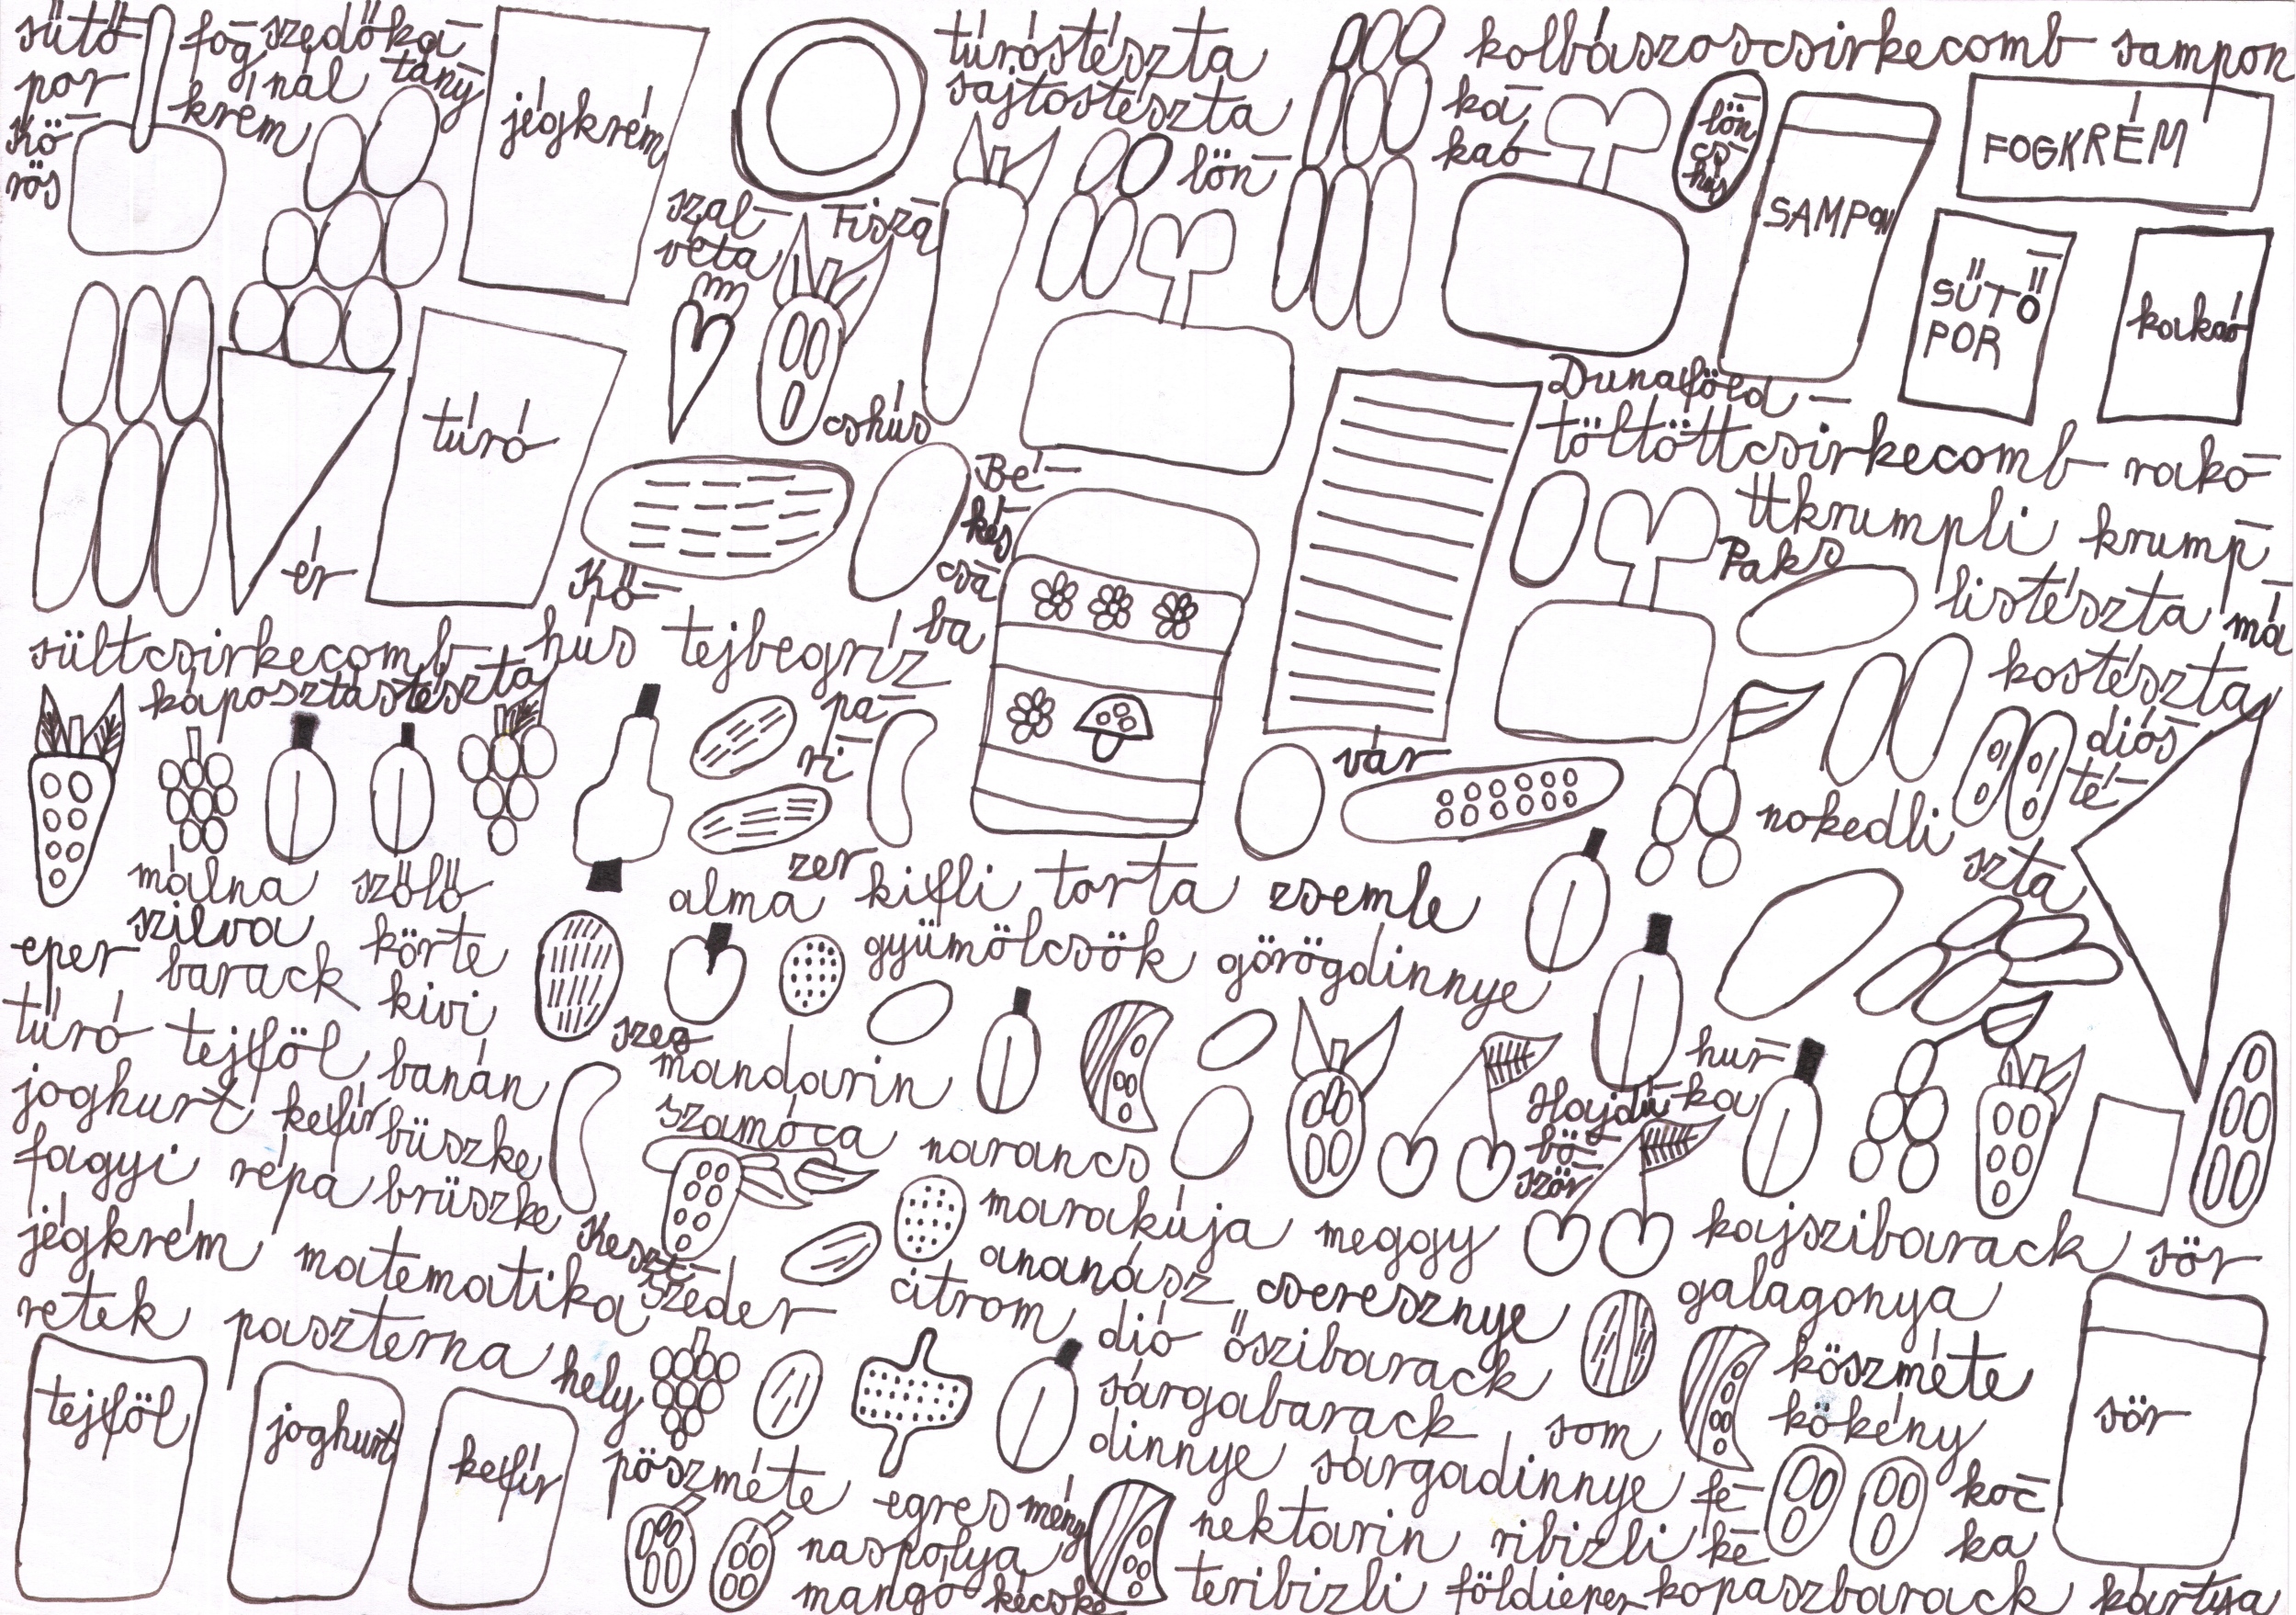 sütő-
por
fog-
krém
szedőka-
nál
tány-
ér
Kő-
rös
jégkrém
túróstészta
sajtostészta
szal-
véta
Tisza-
lön-
cshús
kolbászoscsirkecomb sampon
ka-
kaó
lön
cs
hús
SAMPON
FOGKRÉM
SÜTŐ
POR
kakaó
túró
Dunaföld-
vár
töltöttcsirkecomb rako-
ttkrumpli krump-
listészta má-
kostészta
Paks
Bé-
kés
csa
ba
Kő-
szeg
sültcsirkecomb hús tejbegríz
káposztástészta
pa-
ri
zer
diós-
té-
szta
nokedli
málna szőlő
szilva
alma kifli torta zsemle
eper barack körte
gyümölcsök görögdinnye
kivi
túró tejföl banán
mandarin
hur-
ka
Hajdú-
bö-
ször
mény
joghurt kefír büszke
szamóca narancs
fagyi répa brüszke
marakúja meggy kajszibarack sör
jégkrém matematika
Keszt-
hely
szeder
ananász cseresznye galagonya
retek paszterna
citrom dió őszibarack
köszméte
sárgabarack som kökény
tejföl
joghurt
kefír
sör
pöszméte egres
dinnye sárgadinnye fe-
ke
koc-
ka
naspolya
nektarin ribizli
mangó kécske
teribizli földieper kopaszbarack kártya